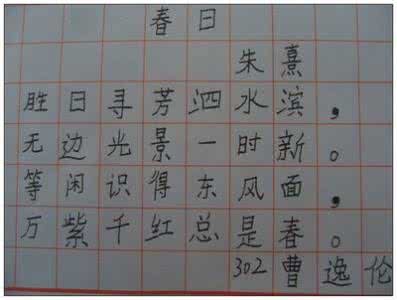 春日
朱熹
胜日寻芳泗水滨，
无边光景一时新。
等闲识得东风面，
万紫千红总是春。
302曹逸伦